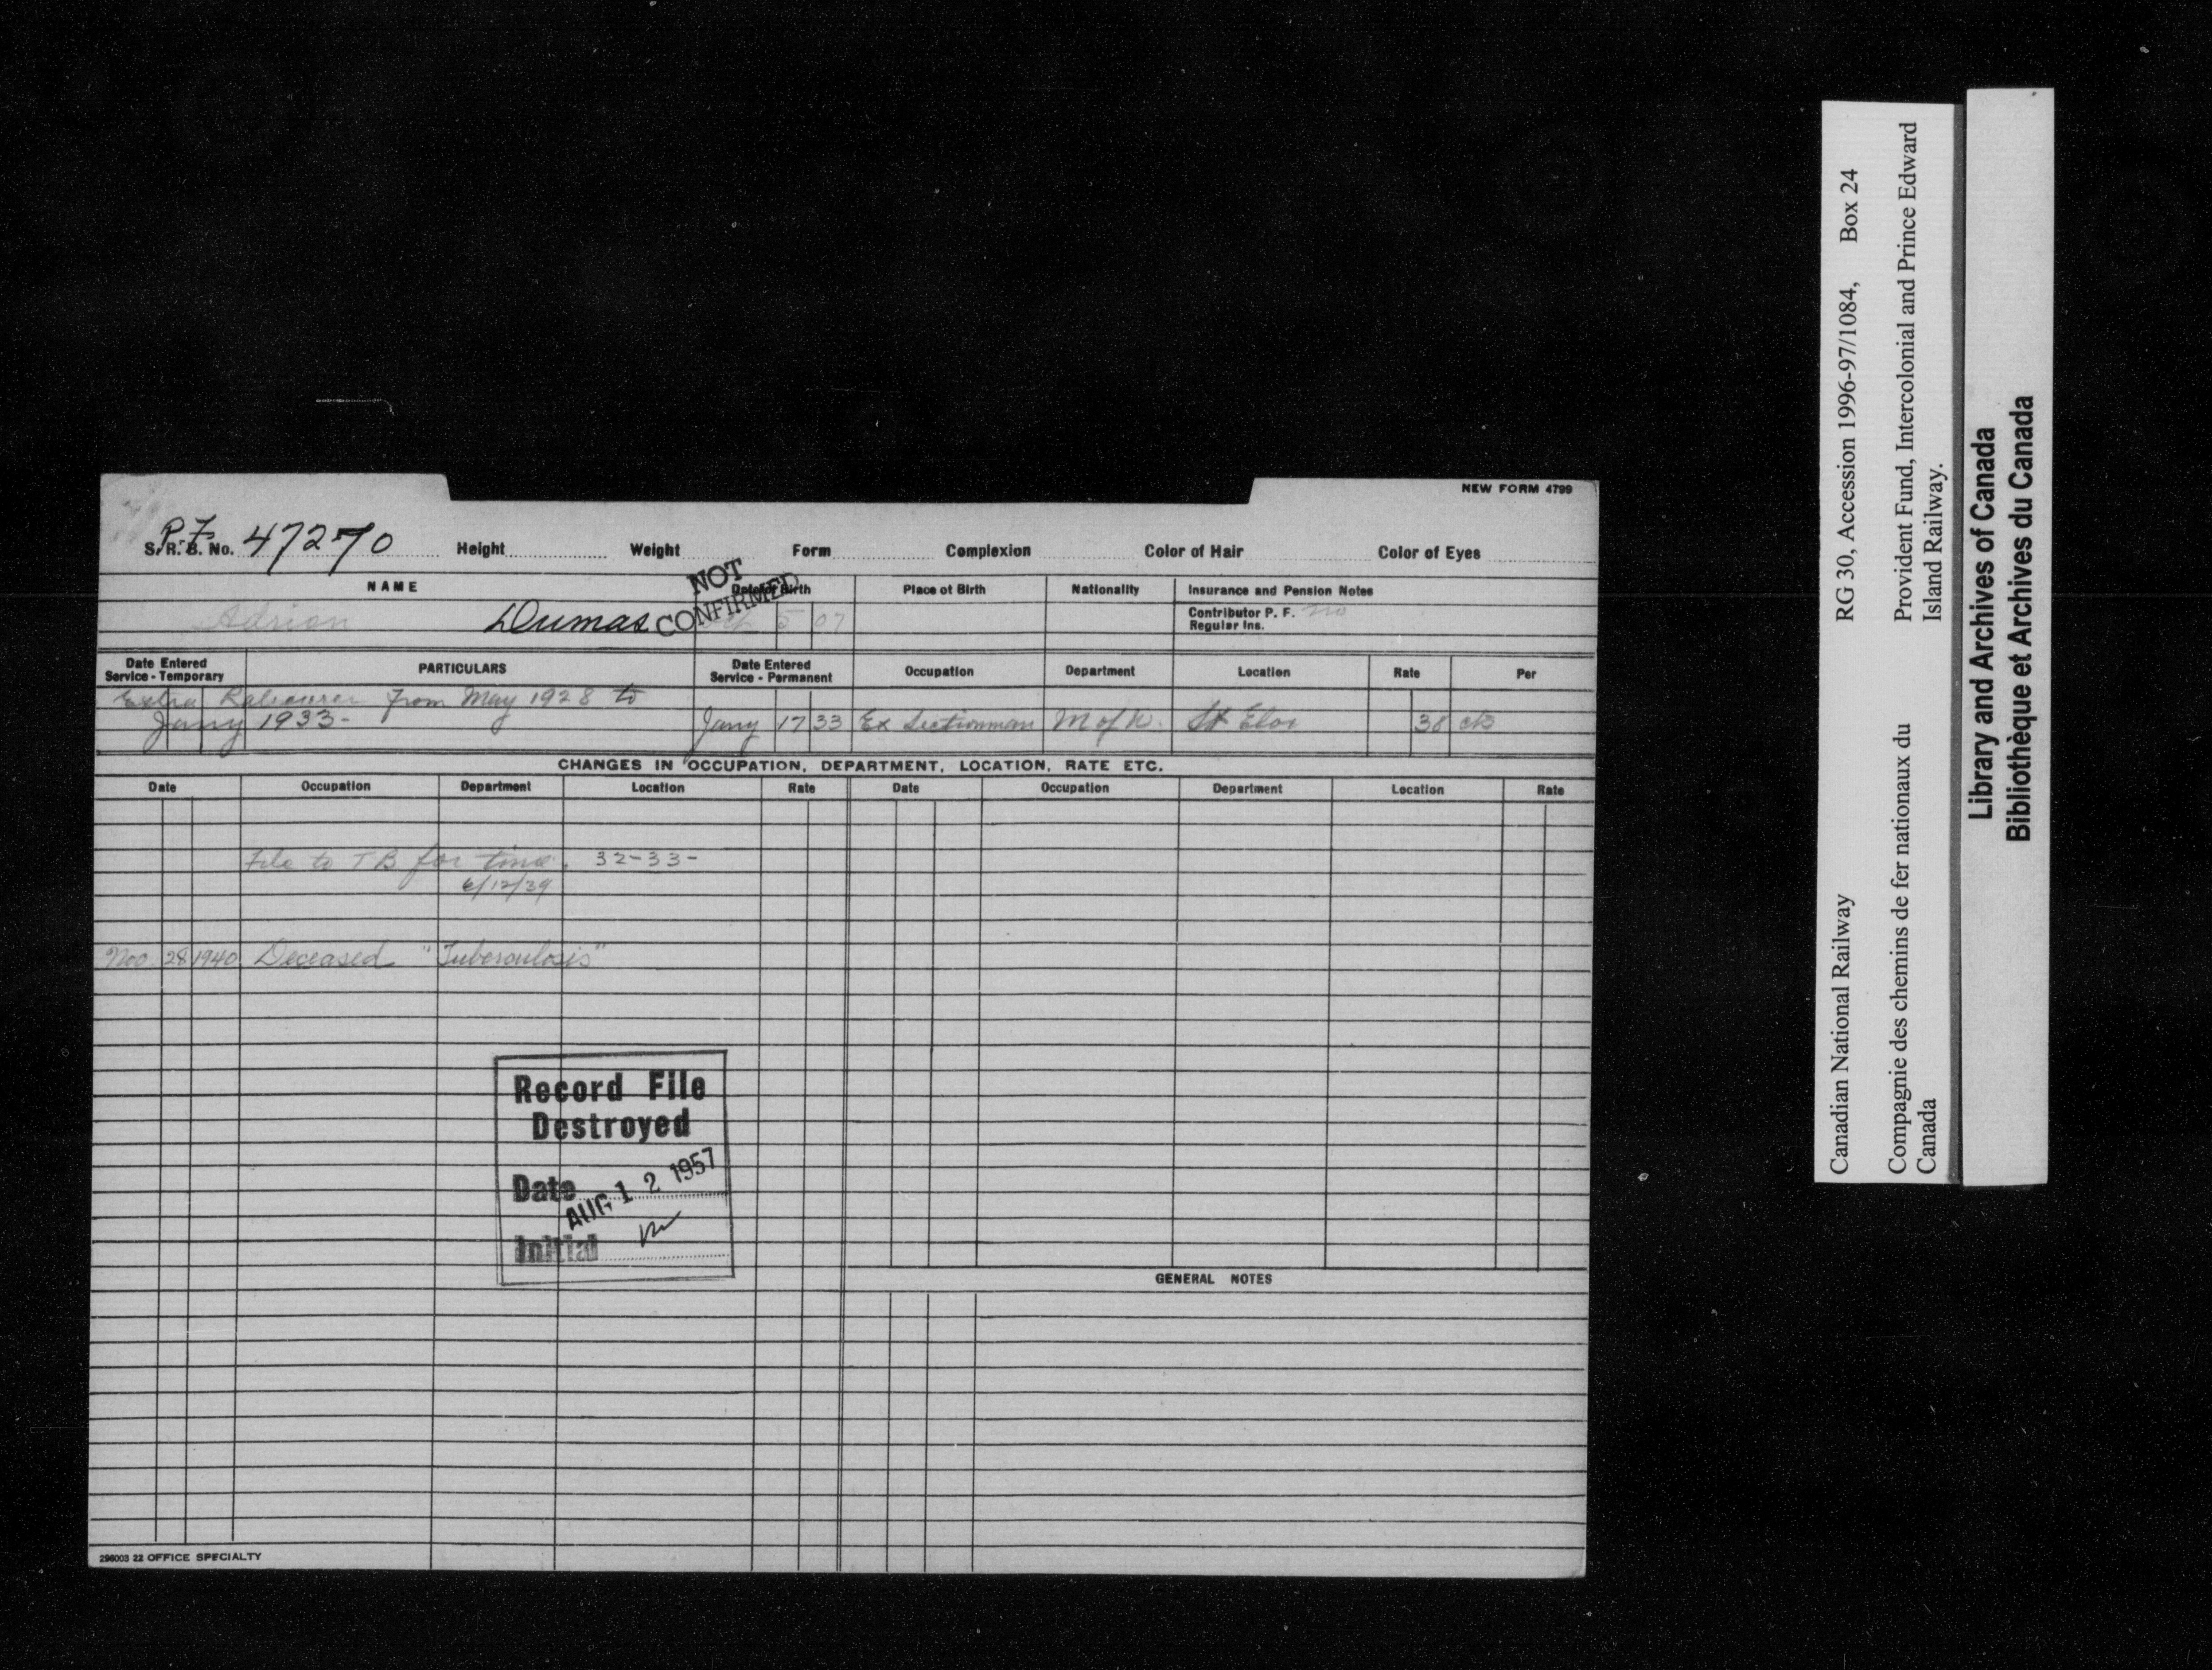 NEW FORM 4799
P.F.
S.R.B. No. 47270 Height Weight Form Complexion Color of Hair Color of Eyes
NAME Date of Birth Place of Birth Nationality Insurance and Pension Notes
NOT CONFIRMED
Adrian Dumas 5 07 Contributor P. F. no
Regular Ins.
Date Entered Service - Temporary PARTICULARS Date Entered Service - Permanent Occupation Department Location Rate Per
Extra Labourer from May 1928 to
Jany 1933- Jany 17 33 Ex Sectionman M of W. St Eloi 38 cts
CHANGES IN OCCUPATION, DEPARTMENT, LOCATION, RATE ETC.
Date Occupation Department Location Rate Date Occupation Department Location Rate
File to T B for time. 32-33-
6/12/39
Nov. 28 1940 Deceased "Tuberculosis"
Record File
Destroyed
Date AUG 12 1957
Initial
GENERAL NOTES
296003 22 OFFICE SPECIALTY
Canadian National Railway RG 30, Accession 1996-97/1084, Box 24
Compagnie des chemins de fer nationaux du Provident Fund, Intercolonial and Prince Edward
Canada Island Railway.
Library and Archives of Canada
Bibliothèque et Archives du Canada